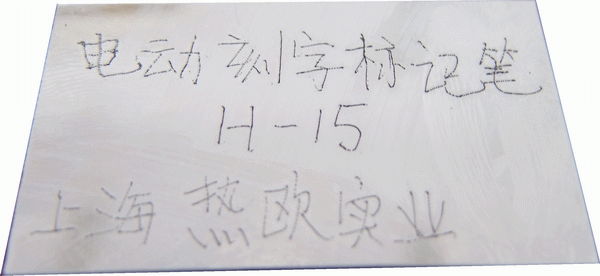 电动刻字标记笔
H-15
上海热欧实业